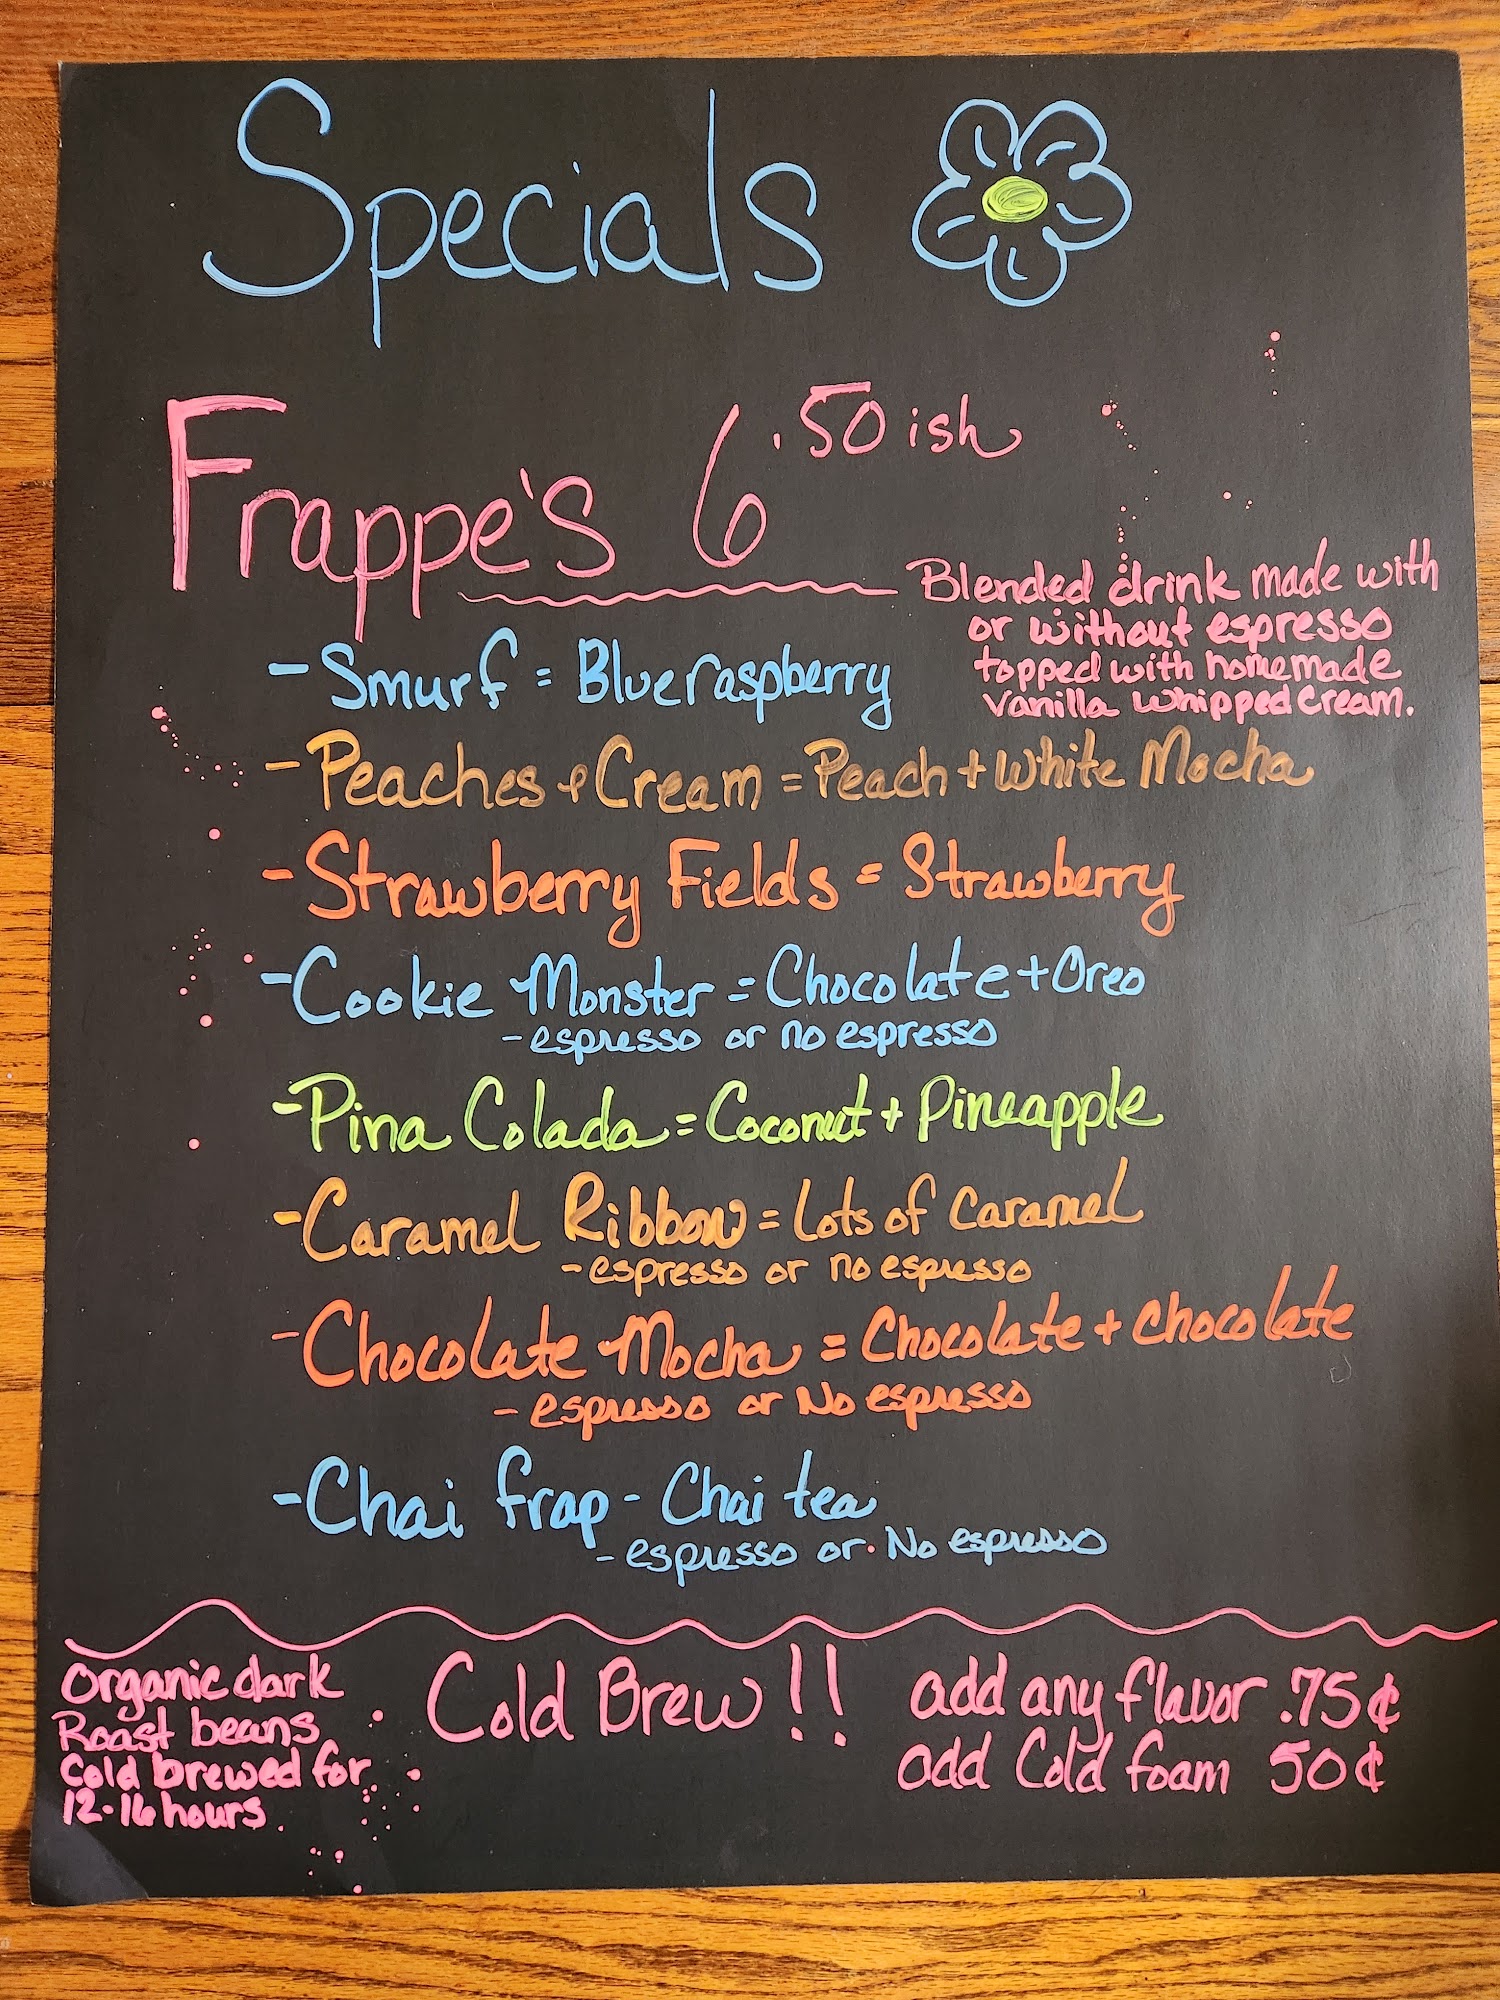 Specials
Frappe's 6.50 ish
Blended drink made with
or without espresso
topped with homemade
vanilla whipped cream.
- Smurf = Blue raspberry
- Peaches & Cream = Peach + White Mocha
- Strawberry Fields = Strawberry
- Cookie Monster = Chocolate + Oreo
- espresso or no espresso
- Pina Colada = Coconut + Pineapple
- Caramel Ribbon = Lots of Caramel
- espresso or no espresso
- Chocolate Mocha = Chocolate + Chocolate
- espresso or No espresso
- Chai frap - Chai tea
- espresso or No espresso
Organic dark
Roast beans
Cold brewed for
12-16 hours
Cold Brew!!
add any flavor .75¢
add Cold foam 50¢